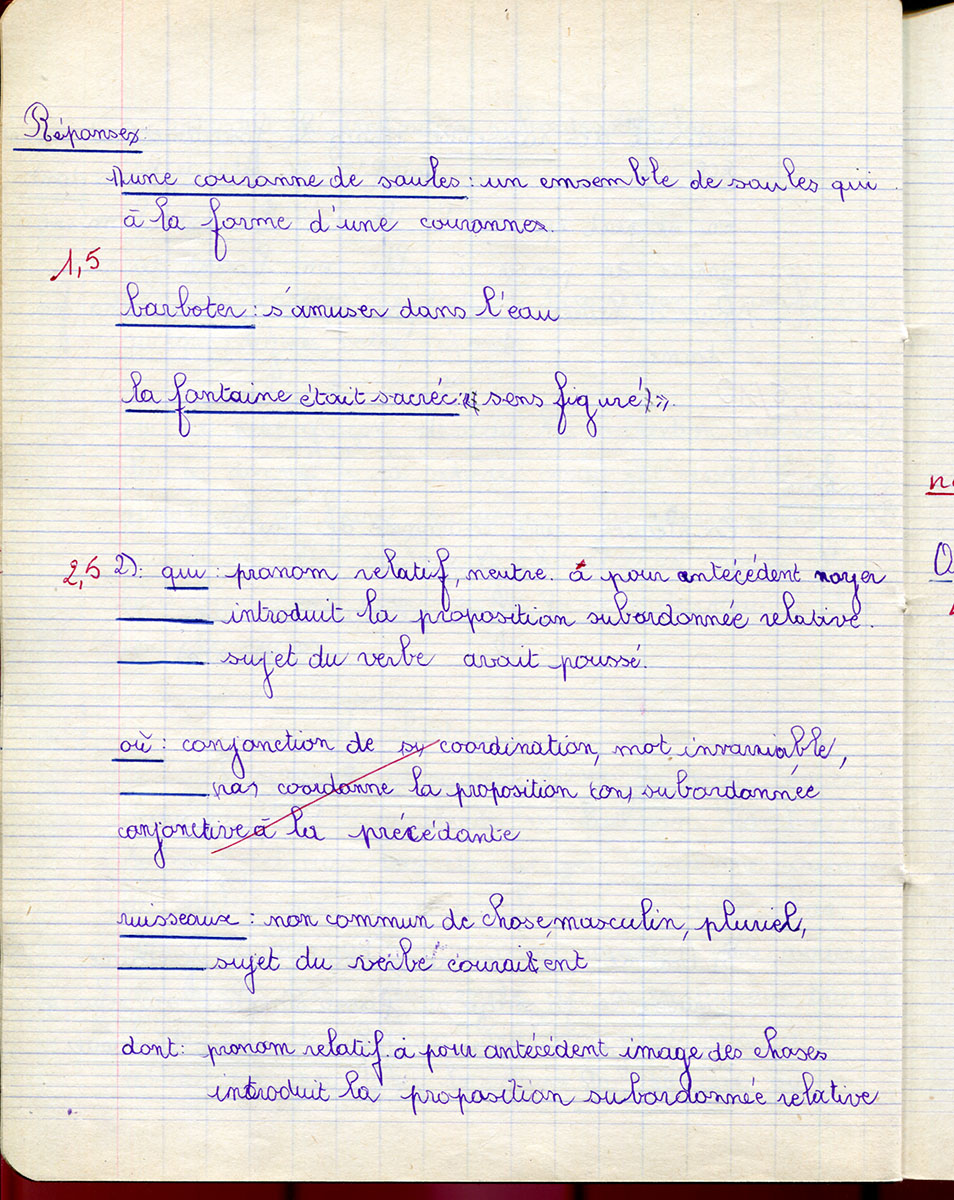 Réponses
1) une couronne de saules : un ensemble de saules qui
à la forme d'une couronne.
1,5
barboter : s'amuser dans l'eau
la fontaine était sacrée : « sens figuré ».
2,5 2) : qui : pronom relatif, neutre. à pour antécédent noyer
introduit la proposition subordonnée relative.
sujet du verbe avait poussé.
où : conjonction de coordination, mot invariable,
coordonne la proposition subordonnée
conjonctive à la précédante
ruisseaux : non commun de chose, masculin, pluriel,
sujet du verbe couraient
dont : pronom relatif. à pour antécédent image des choses
introduit la proposition subordonnée relative